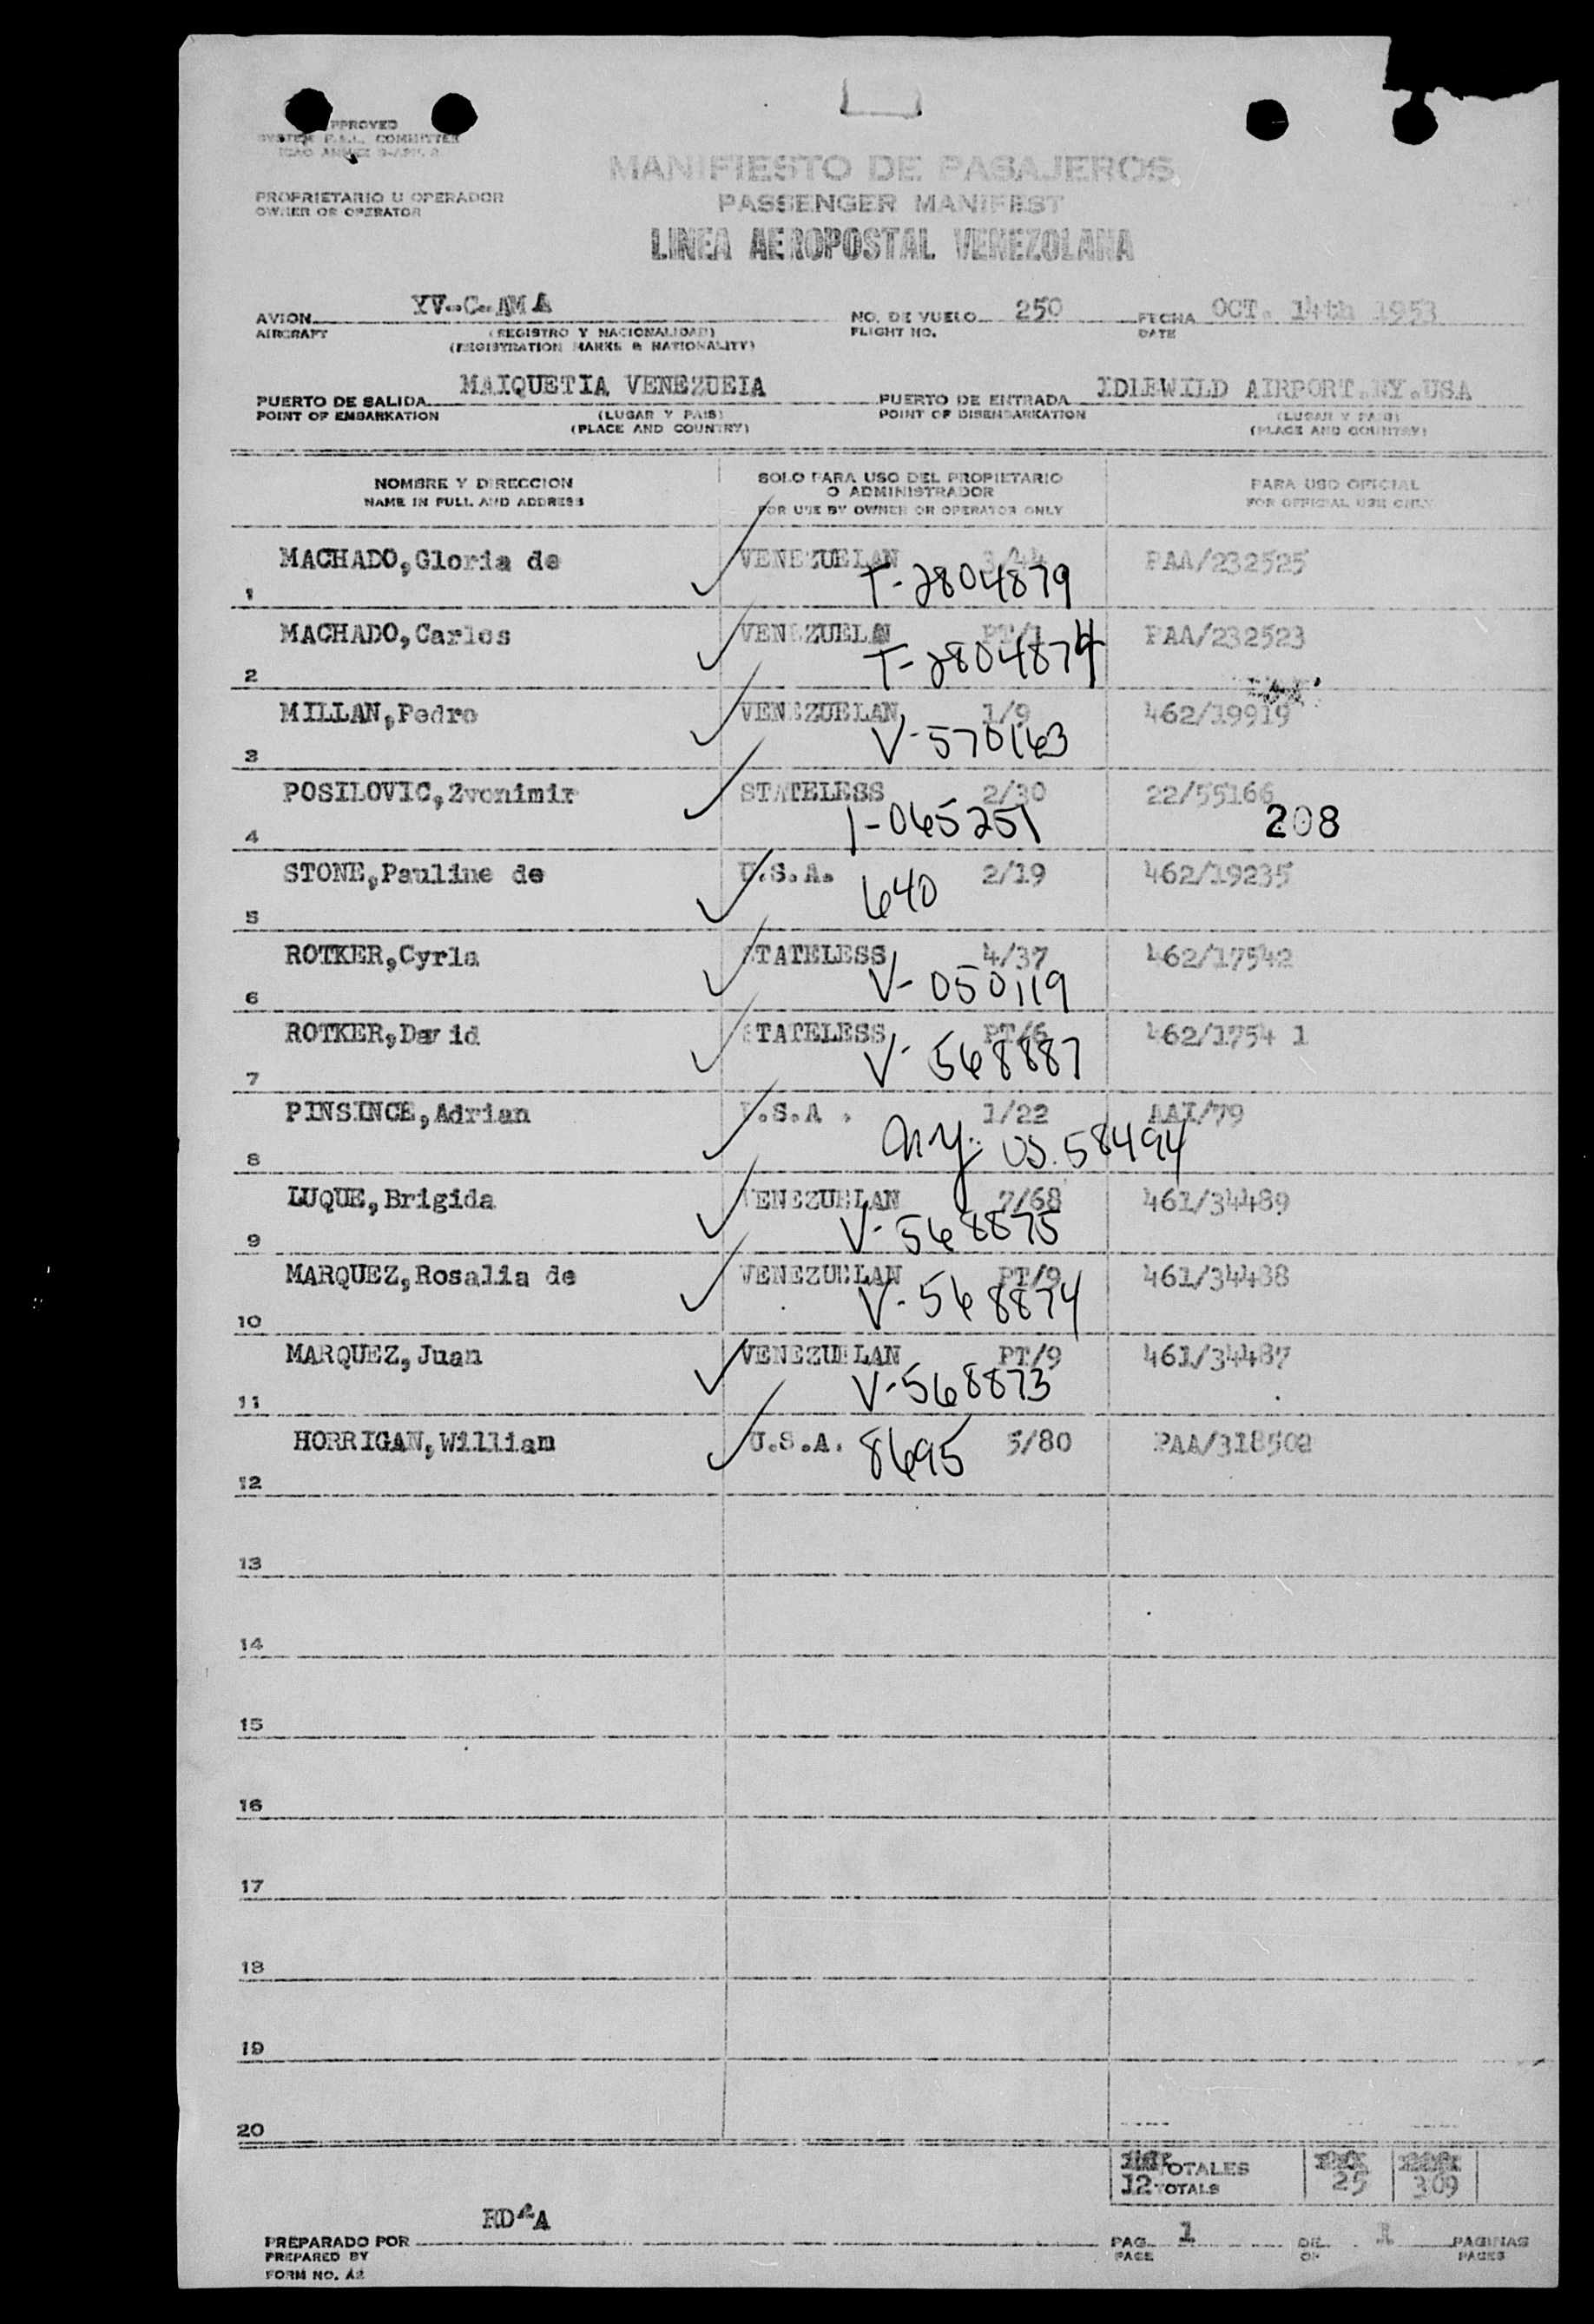 APPROVED
SYSTEM F.A.L. COMMITTEE
ICAO ANNEX 9-APP. 2
MANIFIESTO DE PASAJEROS
PROPRIETARIO U OPERADOR
OWNER OR OPERATOR
PASSENGER MANIFEST
LINEA AEROPOSTAL VENEZOLANA
AVION YV-C-AMA NO. DE VUELO 250 FECHA OCT. 14th 1953
AIRCRAFT (REGISTRO Y NACIONALIDAD) FLIGHT NO. DATE
(REGISTRATION MARKS & NATIONALITY)
PUERTO DE SALIDA MAIQUETIA VENEZUEIA PUERTO DE ENTRADA IDLEWILD AIRPORT.NY.USA
POINT OF EMBARKATION (LUGAR Y PAIS) POINT OF DISEMBARKATION (LUGAR Y PAIS)
(PLACE AND COUNTRY) (PLACE AND COUNTRY)
NOMBRE Y DIRECCION SOLO PARA USO DEL PROPIETARIO PARA USO OFICIAL
O ADMINISTRADOR
NAME IN FULL AND ADDRESS FOR USE BY OWNER OR OPERATOR ONLY FOR OFFICIAL USE ONLY
MACHADO,Gloria de VENEZUELAN 3/44 PAA/232525
1 T-2804879
MACHADO,Carlos VENEZUELAN PT/1 PAA/232523
2 T-2804874
MILLAN,Pedro VENEZUELAN 1/9 462/19919
3 V-570163
POSILOVIC,Zvonimir STATELESS 2/30 22/55166
4 1-065251 208
STONE,Pauline de U.S.A. 2/19 462/19235
5 640
ROTKER,Cyrla STATELESS 4/37 462/17542
6 V-050119
ROTKER,David STATELESS PT/6 462/1754 1
7 V-568887
PINSINCE,Adrian U.S.A. 1/22 AAI/79
8 N.Y. US. 58494
LUQUE,Brigida VENEZUELAN 7/68 461/34489
9 V-568875
MARQUEZ,Rosalia de VENEZUELAN PT/9 461/34488
10 V-568874
MARQUEZ,Juan VENEZUELAN PT/9 461/34487
11 V-568873
HORRIGAN,William U.S.A. 8695 5/80 PAA/318502
12
13
14
15
16
17
18
19
20
TOTALES
12 TOTALS 25 309
PREPARADO POR RD A PAG. 1 DE 1 PAGINAS
PREPARED BY PAGE OF PAGES
FORM NO. A2